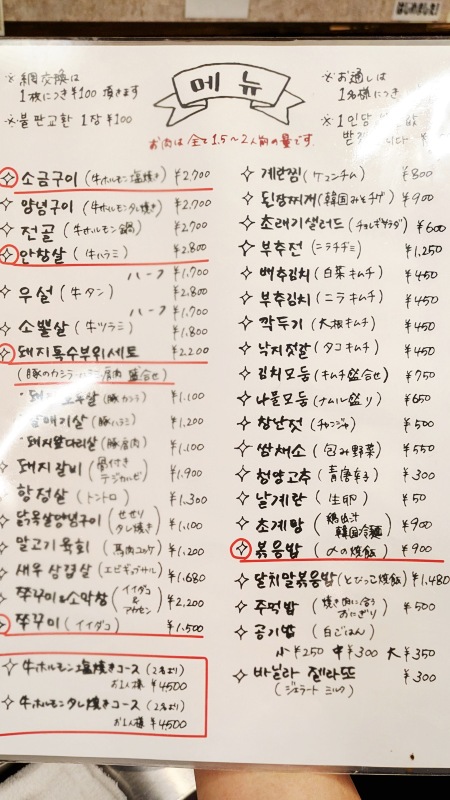 はじめました!
※ 網交換は
1枚につき¥100 頂きます
※ 불판교환 1장 ¥100
메뉴
※ お通しは
1名様につき
※ 1인당
お肉は全て1.5〜2人前の量です
소금구이 (牛ホルモン塩焼き) ¥2,700
양념구이 (牛ホルモンタレ焼き) ¥2,700
전골 (牛ホルモン鍋) ¥2,700
안창살 (牛ハラミ) ¥2,800
ハーフ ¥1,700
우설 (牛タン) ¥2,800
ハーフ ¥1,700
소뽈살 (牛ツラミ) ¥1,800
돼지특수부위세트 ¥2,200
(豚のカシラ・ハラミ・肩肉 盛合せ)
(豚カシラ) ¥1,100
갈매기살 (豚ハラミ) ¥1,200
돼지앞다리살 (豚肩肉) ¥1,100
돼지갈비 (骨付きテジカルビ) ¥1,900
항정살 (トントロ) ¥1,300
닭목살양념구이 (せせりタレ焼き) ¥1,100
말고기육회 (馬肉ユッケ) ¥1,200
새우삼겹살 (エビギョプサル) ¥1,680
쭈꾸미&소막창 (イイダコ&アカセン) ¥2,200
쭈꾸미 (イイダコ) ¥1,500
牛ホルモン塩焼きコース (2名より)
お1人様 ¥4500
牛ホルモンタレ焼きコース (2名より)
お1人様 ¥4500
계란찜 (ケランチム) ¥800
된장찌개 (韓国みそチゲ) ¥900
초래기샐러드 (チョレギサラダ) ¥600
부추전 (ニラチヂミ) ¥1,250
배추김치 (白菜キムチ) ¥450
부추김치 (ニラキムチ) ¥450
깍두기 (大根キムチ) ¥450
낙지젓갈 (タコキムチ) ¥450
김치모둠 (キムチ盛合せ) ¥750
나물모둠 (ナムル盛り) ¥650
창난젓 (チャンジャ) ¥500
쌈채소 (包み野菜) ¥550
청양고추 (青唐辛子) ¥300
날계란 (生卵) ¥50
초계망 (鶏出汁韓国冷麺) ¥900
볶음밥 (〆の焼飯) ¥900
날치알볶음밥 (とびっこ焼飯) ¥1,480
주먹밥 (焼き肉に合うおにぎり) ¥500
공기밥 (白ごはん)
小¥250 中¥300 大¥350
바닐라 젤라또 ¥300
(ジェラート ミルク)